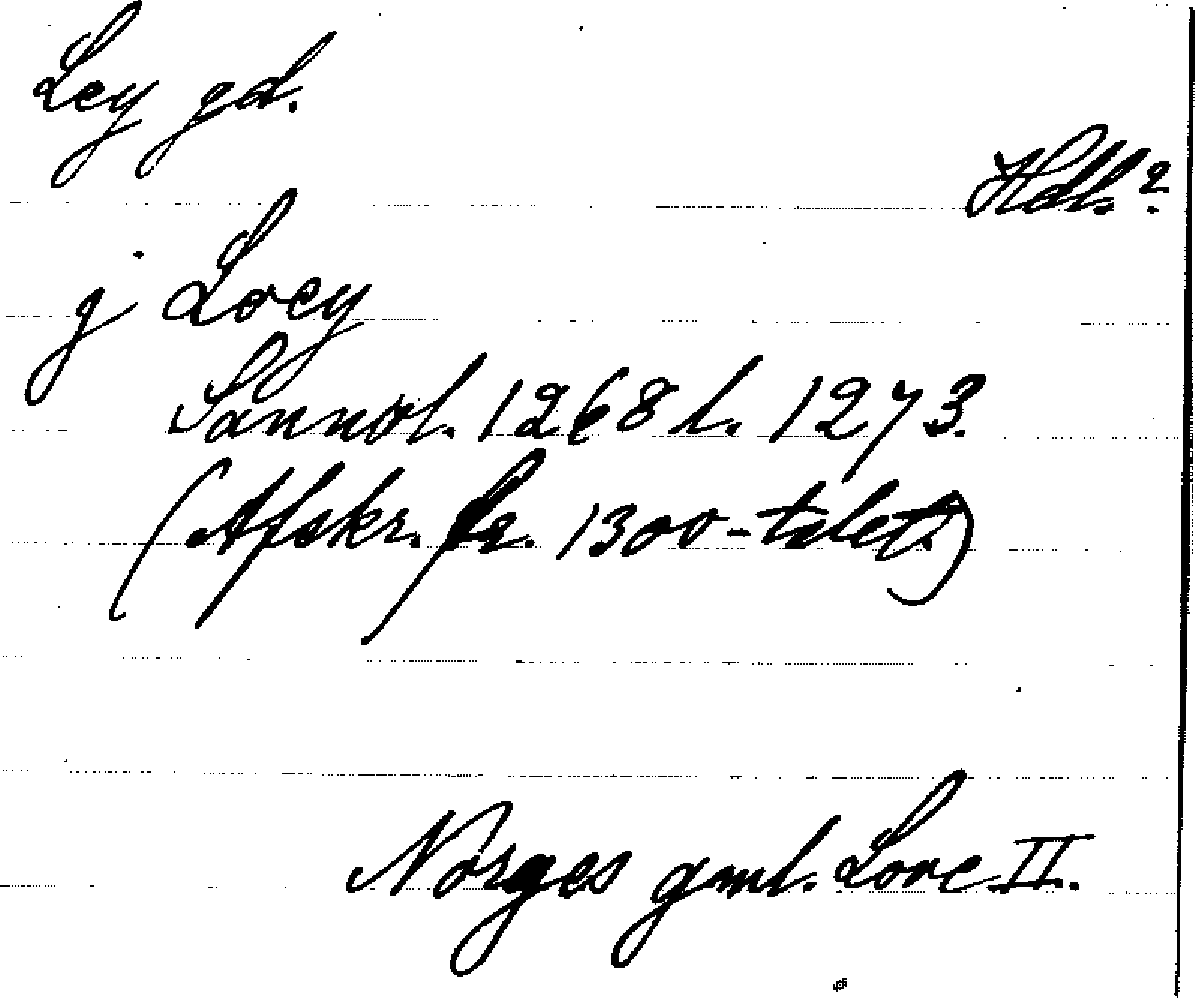 Ley gd.
Hdl.?
j Loey
Sannol. 1268 l. 1273.
(Afskr. fr. 1300-talet.)
Norges gml. Love II.